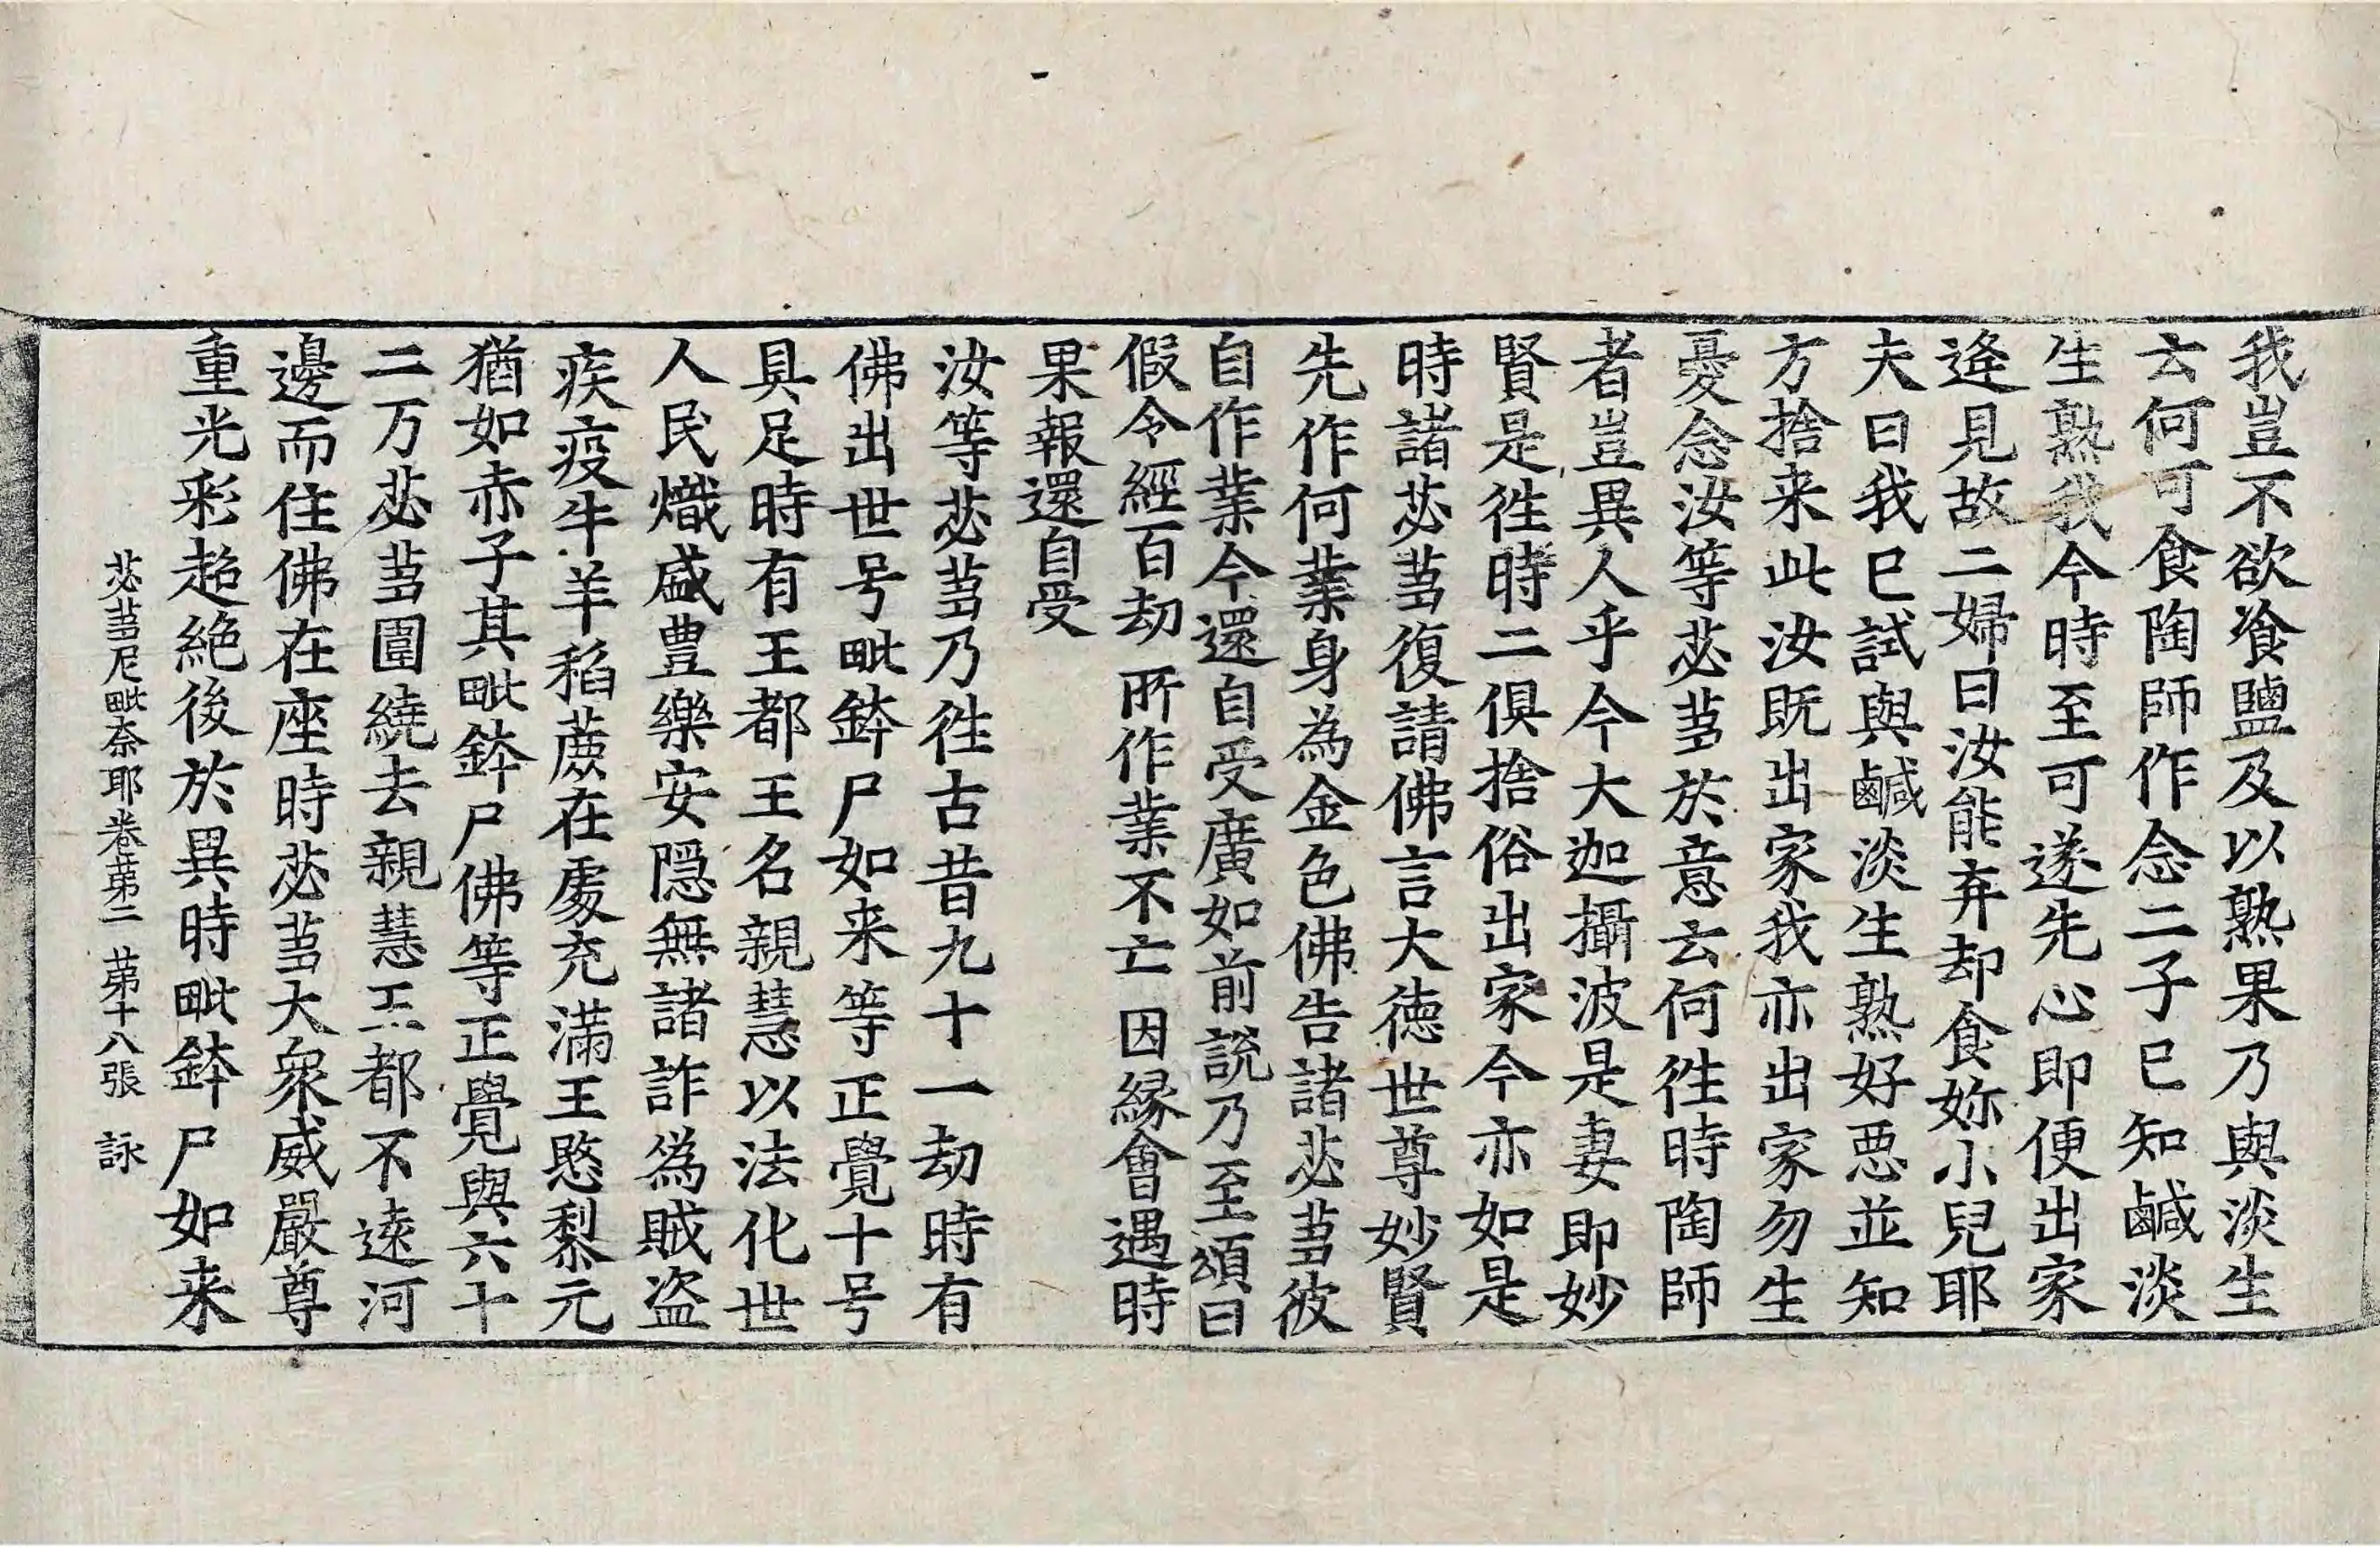 我豈不欲飡鹽及以熟果乃與淡生
云何可食陶師作念二子已知鹹淡
生熟我今時至可遂先心即便出家
逄見故二婦曰汝能弃却食妳小兒耶
夫曰我已試與鹹淡生熟好悪並知
方捨来此汝既出家我亦出家勿生
憂念汝等苾芻於意云何徃時陶師
者豈異人乎今大迦攝波是妻即妙
賢是徃時二俱捨俗出家今亦如是
時諸苾芻復請佛言大徳世尊妙賢
先作何業身為金色佛告諸苾芻彼
自作業今還自受廣如前說乃至頌曰
假令經百劫　所作業不亡　因縁會遇時
果報還自受
汝等苾芻乃徃古昔九十一劫時有
佛出世号毗鉢尸如来等正覺十号
具足時有王都王名親慧以法化世
人民熾盛豊樂安隠無諸詐偽賊盗
疾疫牛羊稻蔗在處充滿王愍黎元
猶如赤子其毗鉢尸佛等正覺與六十
二万苾芻圍繞去親慧王都不遠河
邊而住佛在座時苾芻大衆威嚴尊
重光彩超絶後於異時毗鉢尸如来
苾芻尼毗奈耶卷第二　第十八張　詠